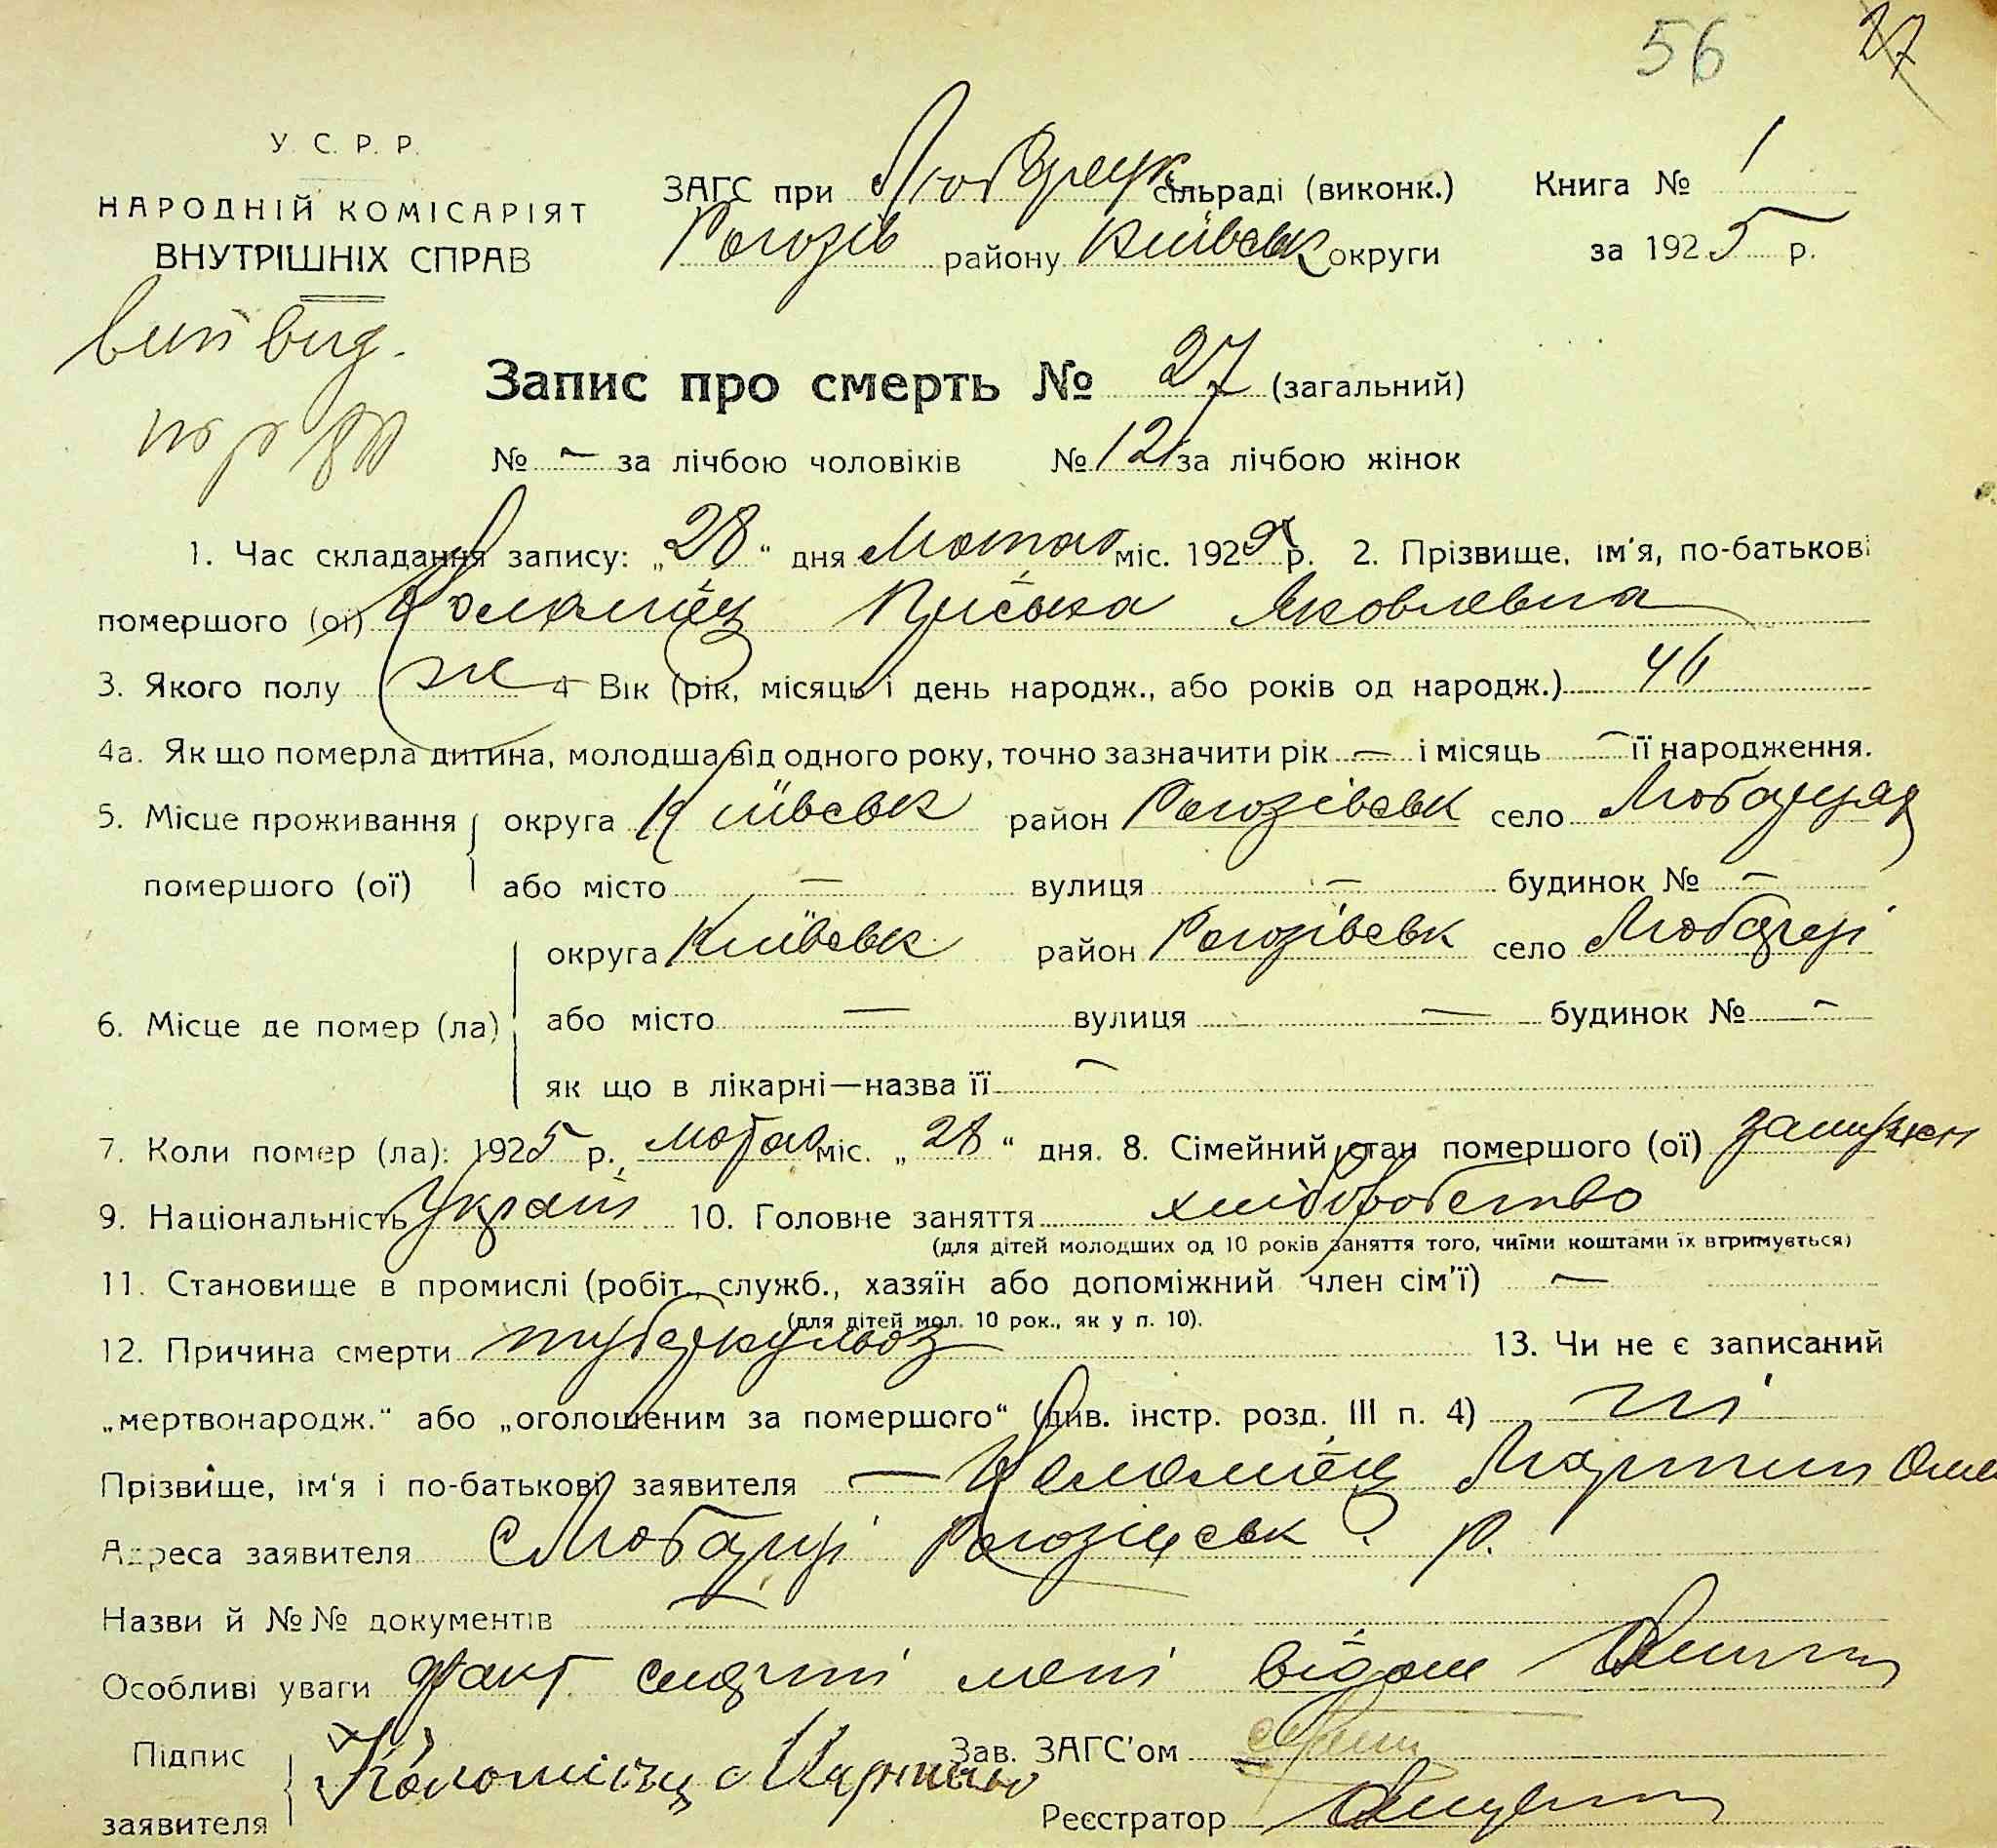 56 27
У. С. Р. Р.
НАРОДНІЙ КОМІСАРІЯТ
ВНУТРІШНІХ СПРАВ
ЗАГС при Любарецк сільраді (виконк.) Книга № 1
Рогозів району Київськ округи за 1925 р.
Запис про смерть № 27 (загальний)
№ — за лічбою чоловіків № 12 за лічбою жінок
1. Час складання запису: „28“ дня Лютого міс. 1925 р. 2. Прізвище, ім'я, по-батькові
помершого (ої) Коломієц Приська Яковлевна
3. Якого полу ж 4 Вік (рік, місяць і день народж., або років од народж.) 46
4а. Як що померла дитина, молодша від одного року, точно зазначити рік — і місяць — її народження.
5. Місце проживання помершого (ої) округа Київськ район Рогозівськ село Любарцях
або місто — вулиця — будинок № —
6. Місце де помер (ла) округа Київськ район Рогозівськ село Любарці
або місто — вулиця — будинок № —
як що в лікарні—назва її —
7. Коли помер (ла): 1925 р., лютого міс. „28“ дня. 8. Сімейний стан помершого (ої) замужен
9. Національність Україн 10. Головне заняття хліборобство
(для дітей молодших од 10 років заняття того, чиїми коштами їх втримується)
11. Становище в промислі (робіт., служб., хазяїн або допоміжний член сім'ї) —
(для дітей мол. 10 рок., як у п. 10).
12. Причина смерти туберкульоз 13. Чи не є записаний
„мертвонародж.“ або „оголошеним за помершого“ (див. інстр. розд. III п. 4) ні
Прізвище, ім'я і по-батькові заявителя — Коломієц Мартин
Адреса заявителя с Любарці Рогозівськ р.
Назви й №№ документів —
Особливі уваги факт смерті мені відом
Підпис заявителя Коломієць Мартин Зав. ЗАГС'ом
Реєстратор